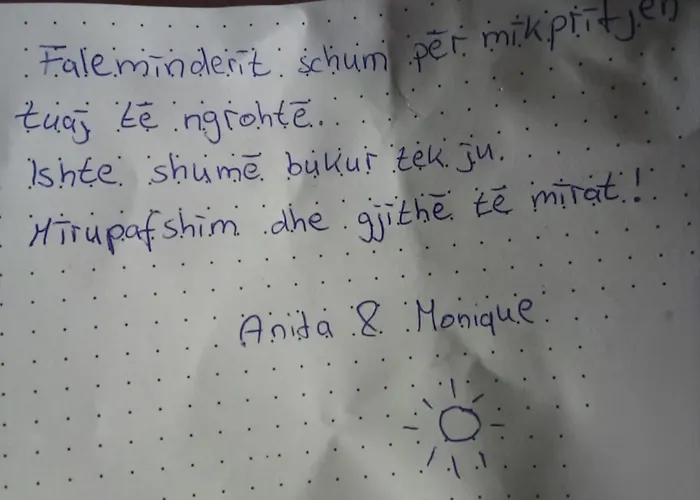 Faleminderit schum për mikpritjen
tuaj të ngrohtë.
Ishte shumë bukur tek ju.
Mirupafshim dhe gjithë të mirat!
Anita & Monique